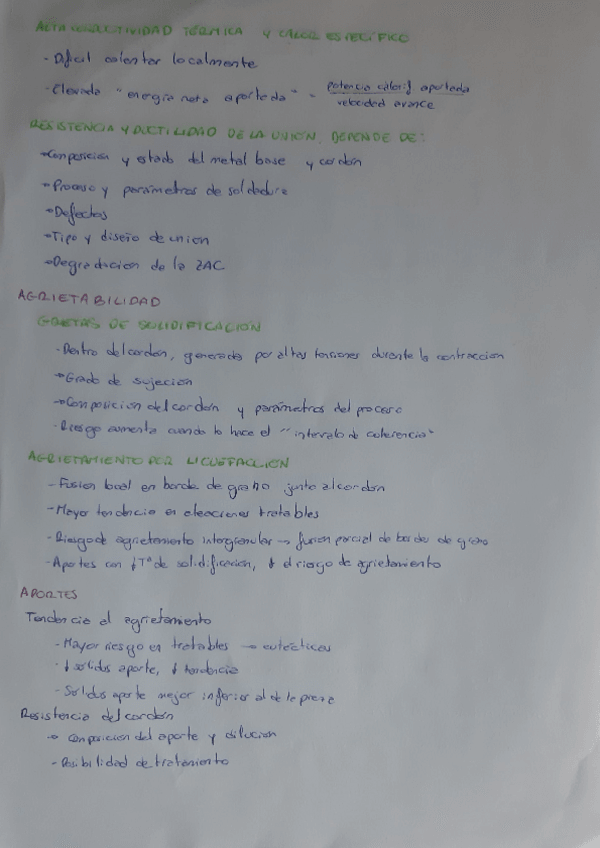 ALTA CONDUCTIVIDAD TÉRMICA Y CALOR ESPECÍFICO
- Dificil calentar localmente
- Elevada "energía neta aportada" = potencia calorif. aportada / velocidad avance
RESISTENCIA Y DUCTILIDAD DE LA UNIÓN, DEPENDE DE:
- Composición y estado del metal base y cordón
- Proceso y parámetros de soldadura
- Defectos
- Tipo y diseño de unión
- Degradación de la ZAC
AGRIETABILIDAD
GRIETAS DE SOLIDIFICACIÓN
- Dentro del cordón, generada por altas tensiones durante la contracción
- Grado de sujeción
- Composición del cordón y parámetros del proceso
- Riesgo aumenta cuando lo hace el "intervalo de coherencia"
AGRIETAMIENTO POR LICUEFACCIÓN
- Fusión local en borde de grano junto al cordón
- Mayor tendencia en aleaciones tratables
- Riesgo de agrietamiento intergranular → fusión parcial de bordes de grano
- Aportes con ↓ Tª de solidificación, ↓ el riesgo de agrietamiento
APORTES
Tendencia al agrietamiento
- Mayor riesgo en tratables → eutécticos
- ↓ solidus aporte, ↓ tendencia
- Solidus aporte mejor inferior al de la pieza
Resistencia del cordón
- Composición del aporte y dilución
- Posibilidad de tratamiento